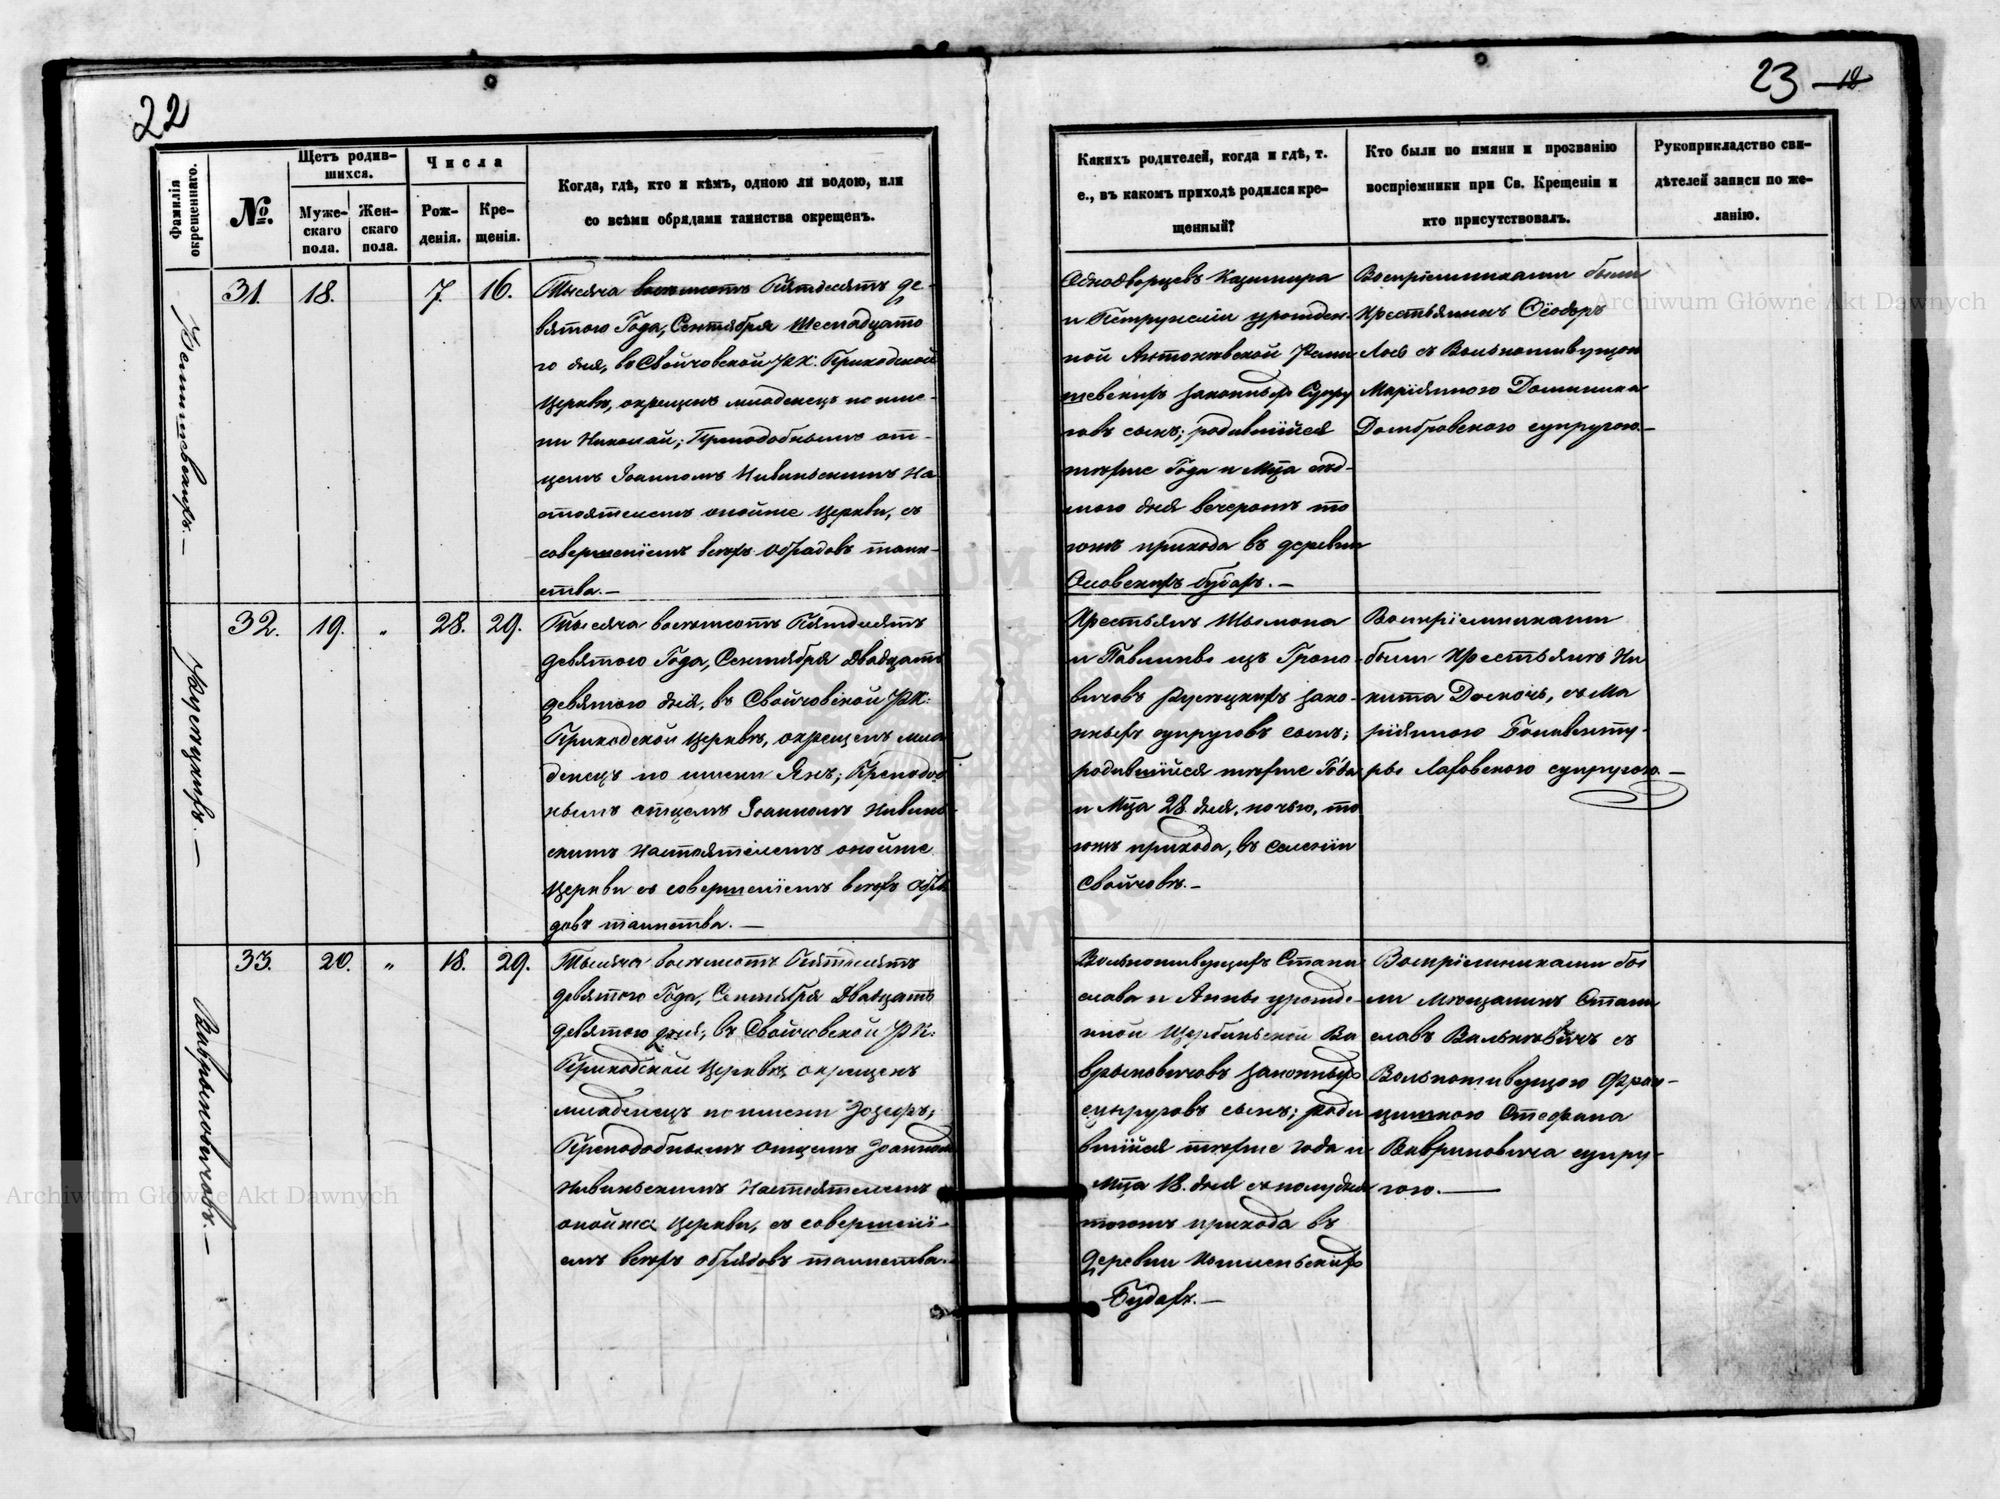 22
23 12
Фамилія окрещеннаго.
№.
Щетъ родив-
шихся.
Муже-
скаго
пола.
Жен-
скаго
пола.
Числа
Рож-
денія.
Кре-
щенія.
Когда, гдѣ, кто и кѣмъ, одною ли водою, или
со всѣми обрядами таинства окрещенъ.
Какихъ родителей, когда и гдѣ, т.
е., въ какомъ приходѣ родился кре-
щенный?
Кто были по имяни и прозванію
воспріемники при Св. Крещеніи и
кто присутствовалъ.
Рукоприкладство сви-
дѣтелей записи по же-
ланію.
31. 18. 7. 16.
Тысяча восемьсотъ Пятдесятъ де-
вятого Года, Сентября Шеснадцато
го дня, въ Свойчовской РК: Приходской
Церквѣ, окрещенъ младенецъ по име-
ни Николай; Преподобнымъ от-
цемъ Іоанномъ Нивинскимъ На
стоятелемъ оной же Церкви, съ
совершеніемъ всѣхъ обрядовъ таин-
ства.—
Однодворцевъ Казимира
и Петрунели урожден-
ной Антоновской
законныхъ Супру
говъ сынъ; родившійся
тогоже Года и Мца сед-
мого дня вечеромъ то
гожъ прихода въ деревни
Будахъ.—
Воспріемниками были
Крестьянинъ Ѳеодоръ
съ Вольноживущою
Маріянною Доминика
Домбровского супругою.—
32. 19. „ 28. 29.
Тысяча восемьсотъ Пятдесятъ
девятого Года, Сентября Двадцать
девятого дня, въ Свойчовской РК:
Приходской Церквѣ, окрещенъ мла
денецъ по имени Янъ; Преподоб
нымъ отцемъ Іоанномъ Нивин-
скимъ Настоятелемъ оной же
Церкви съ совершеніемъ всѣхъ обря
довъ таинства.—
Крестьянъ Шымона
и Павлины изъ
зако-
нныхъ супруговъ сынъ;
родившійся тогоже Года
и Мца 28. дня, ночью, то
гожъ прихода, въ селеніи
Свойчовѣ.—
Воспріемниками
были Крестьянинъ Ни
кита съ Ма
ріянною Бонавенту-
ры супругою.—
Вавржиновичовъ.—
33. 20. „ 18. 29.
Тысяча восемьсотъ Пятдесятъ
девятого Года, Сентября Двадцать
девятого дня, въ Свойчовской РК:
Приходской Церквѣ, окрещенъ
младенецъ по имени Іозефъ;
Преподобнымъ отцемъ Іоанномъ
Нивинскимъ Настоятелемъ
оной же Церкви, съ совершені-
емъ всѣхъ обрядовъ таинства.
Вольноживущихъ Стани
слава и Анны урожде-
нной Щербинской Ва
врыновичовъ законныхъ
супруговъ сынъ; роди
вшійся тогоже года и
Мца 18. дня съ полудня
тогожъ прихода въ
Деревни
Будахъ.—
Воспріемниками бы
ли мещанинъ Стани
славъ съ
Вольноживущою Фран-
цишкою Стефана
Вавриновича супру-
гою.—
Archiwum Główne Akt Dawnych
Archiwum Główne Akt Dawnych